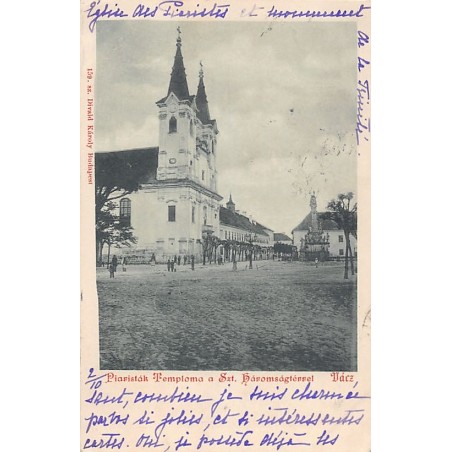 Eglise des Piaristes et monument
de la Trinité.
159. sz. Divald Károly Budapest
Piaristák Temploma a Szt. Háromságtérrel Vácz
2/10
combien je suis charmée
par vos si jolies, et si intéressantes
cartes. Oui, je possède déjà les